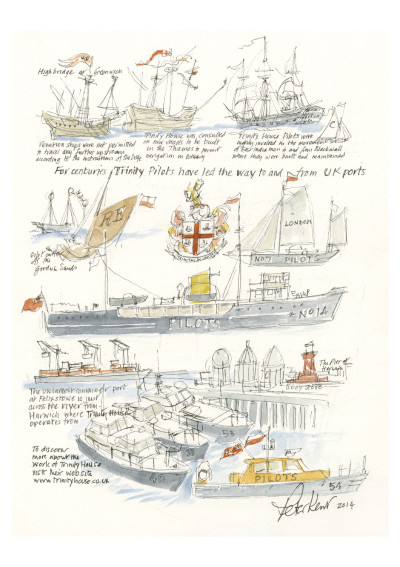 Highbridge at Greenwich
Venetian ships were not permitted
to travel any further upstream
according to the instructions of the
Trinity House was consulted
on new vessels to be built
in the Thames & permit
navigation in
Trinity House Pilots were
highly involved in the movement
of East Indiamen to and from Blackwall
where they were built and maintained
For centuries Trinity Pilots have led the way to and from UK ports
RE
LONDON
Nº7 PILOTS
off the
Goodwin Sands
PILOTS
Nº 1A
The Pier at
Harwich
The UK largest container port
at Felixstowe is just
across the river from
Harwich where Trinity House
operates from
53
To discover
more about the
work of Trinity House
visit their website
www.trinityhouse.co.uk
PILOTS
54
Peter Kent 2014